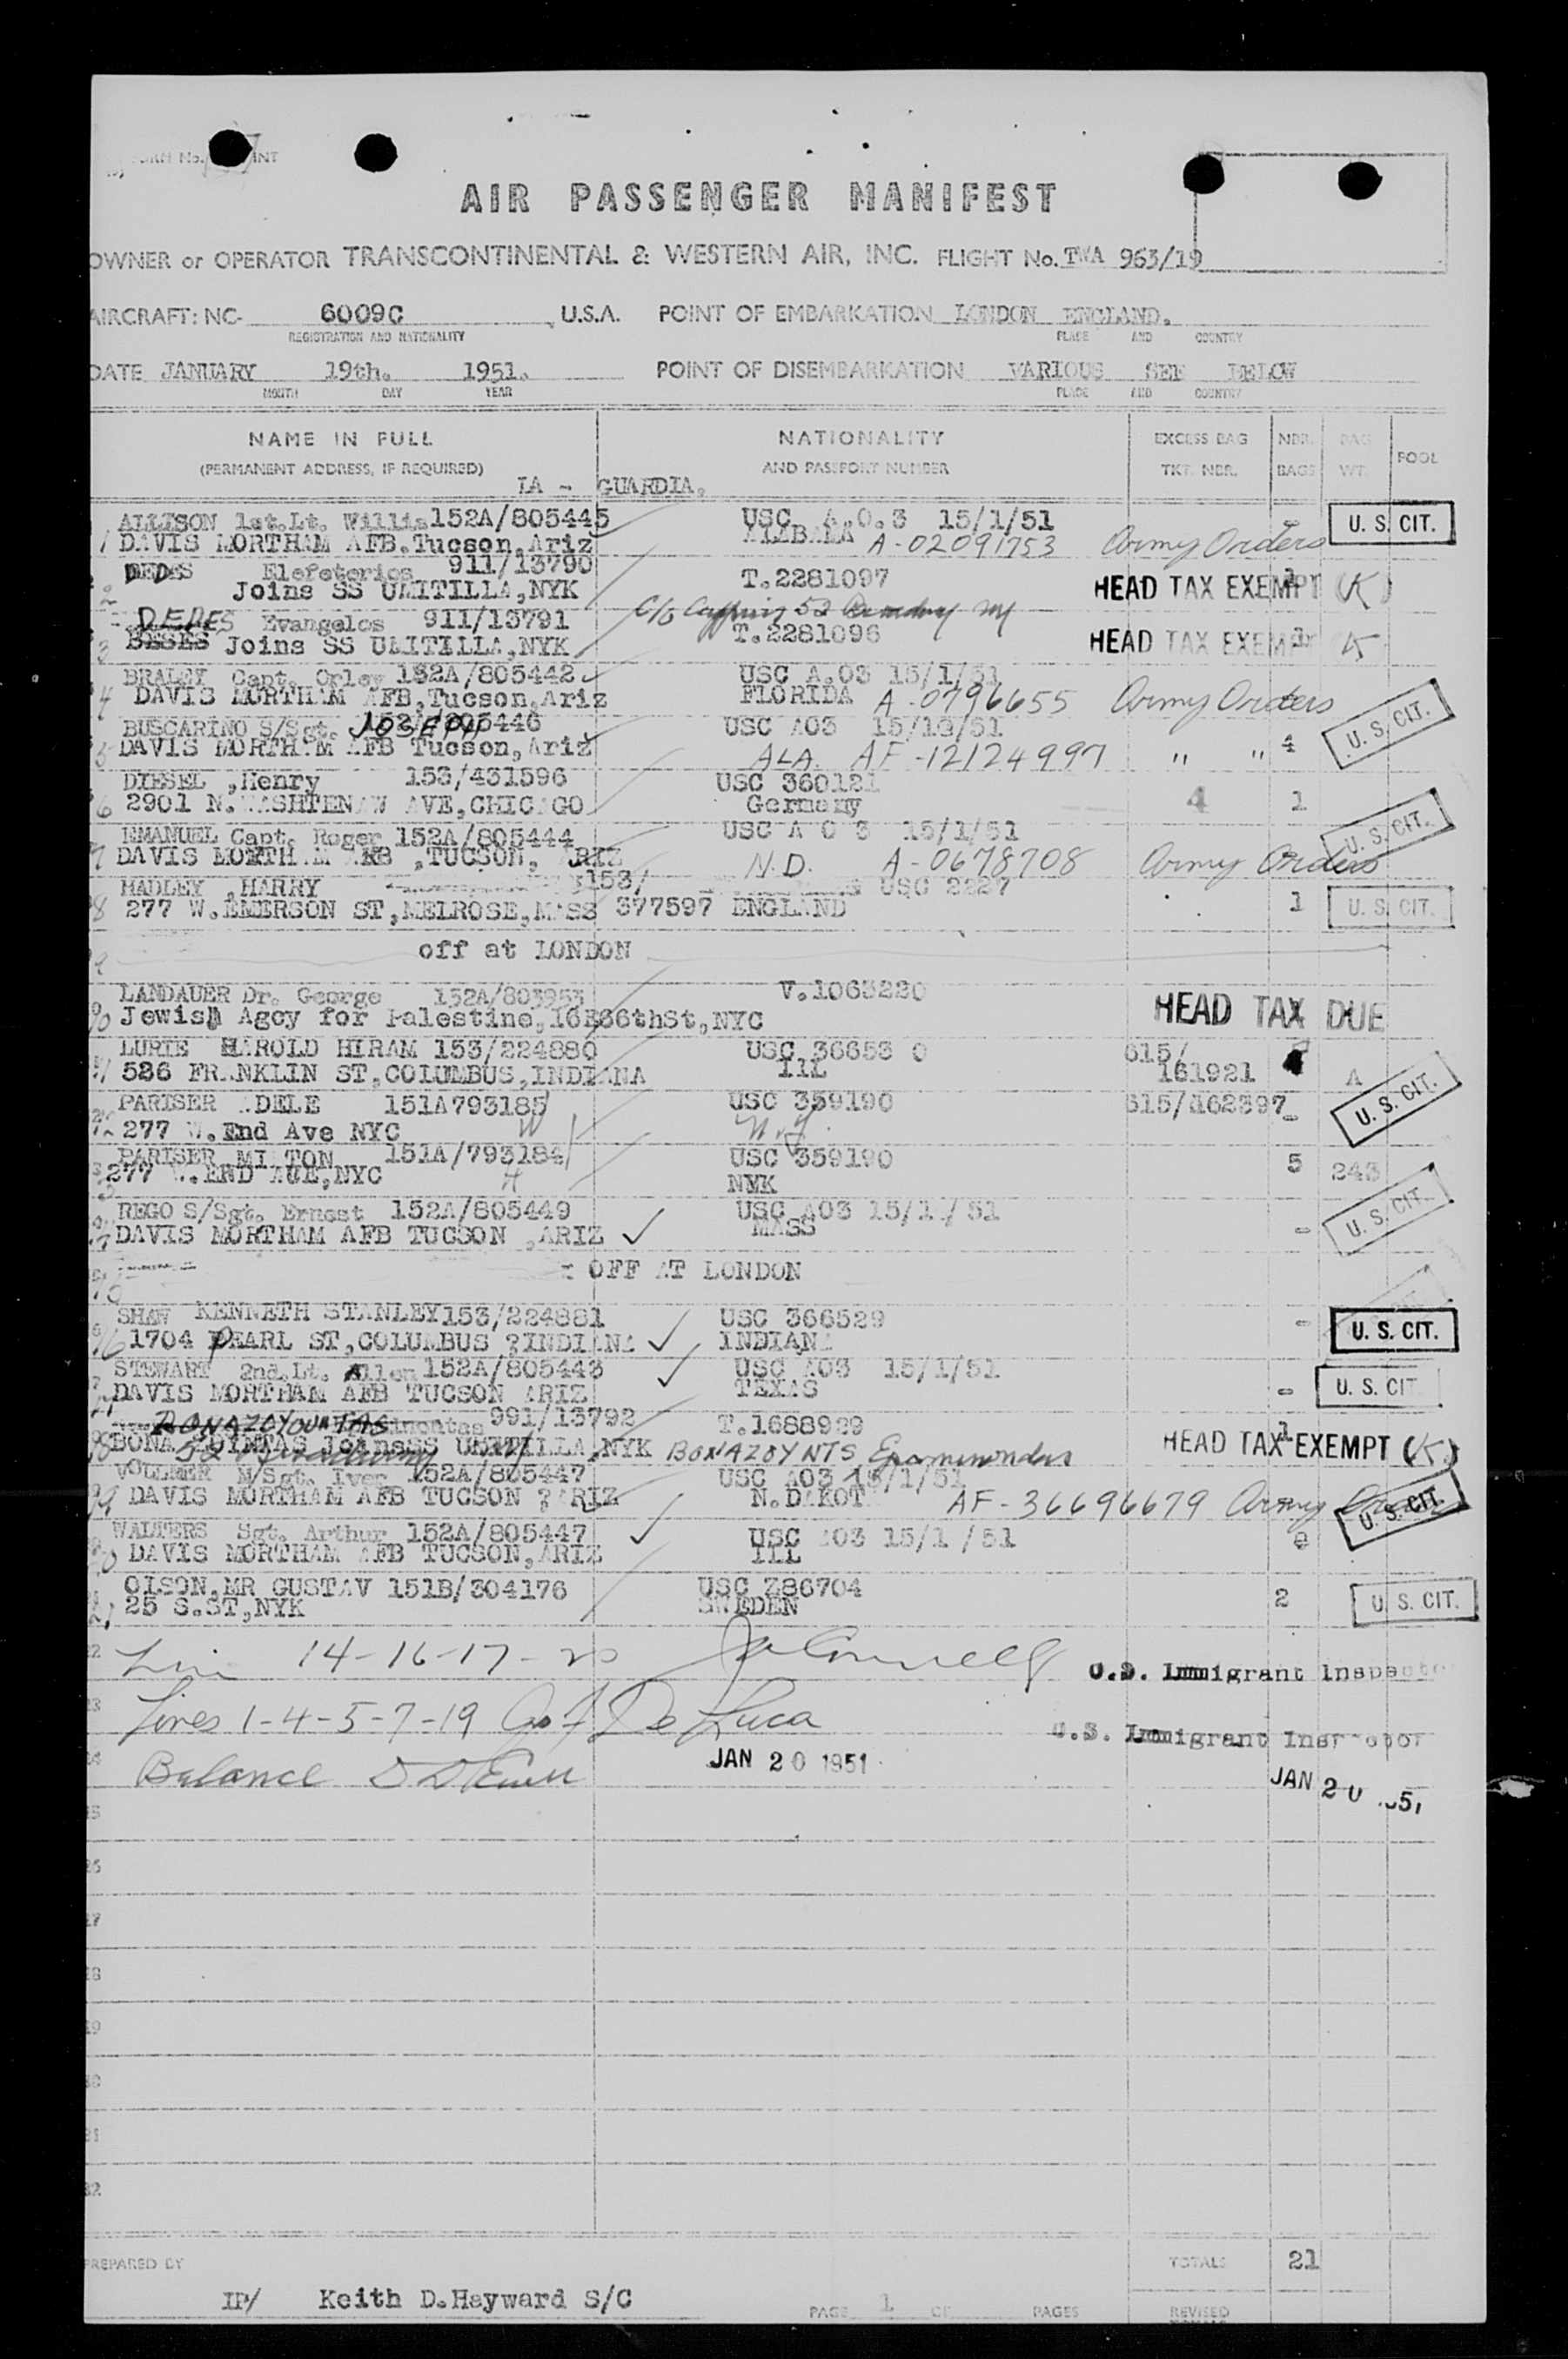 AIR PASSENGER MANIFEST
OWNER or OPERATOR TRANSCONTINENTAL & WESTERN AIR, INC. FLIGHT No. TWA 963/19
AIRCRAFT: NC- 6009C , U.S.A. POINT OF EMBARKATION LONDON ENGLAND.
REGISTRATION AND NATIONALITY PLACE AND COUNTRY
DATE JANUARY 19th. 1951. POINT OF DISEMBARKATION VARIOUS SEE BELOW
MONTH DAY YEAR PLACE AND COUNTRY
NAME IN FULL NATIONALITY EXCESS BAG NBR. BAG POOL
(PERMANENT ADDRESS, IF REQUIRED) AND PASSPORT NUMBER TKT. NBR. BAGS WT.
LA - GUARDIA.
ALLISON 1st.Lt. Willis 152A/805445 USC A.O.3 15/1/51 U.S. CIT.
1 DAVIS MORTHAM AFB.Tucson,Ariz ALABAMA A-02091753 Army Orders
DEDES Elefeterios 911/13790 T.2281097 HEAD TAX EXEMPT (K)
2 Joins SS UMITILLA,NYK
DEDES Evangelos 911/13791 C/o 52 Broadway NY
3 Joins SS UMITILLA,NYK T.2281096 HEAD TAX EXEMPT K
BRALEY Capt. Orley 152A/805442 USC A.03 15/1/51
4 DAVIS MORTHAM AFB,Tucson,Ariz FLORIDA A-0796655 Army Orders
BUSCARINO S/Sgt. JOSEPH 152A/805446 USC A03 15/1/51 U.S. CIT.
5 DAVIS MORTHAM AFB Tucson,Ariz ALA. AF-12124997 " "
DIESEL ,Henry 153/431596 USC 360121
6 2901 N.WASHTENAW AVE,CHICAGO Germany 4 1
EMANUEL Capt. Roger 152A/805444 USC A O 3 15/1/51 U.S. CIT.
7 DAVIS MORTHAM AFB ,TUCSON, ARIZ N.D. A-0678708 Army Orders
HADLEY ,HARRY 153/ USC 2227
8 277 W.EMERSON ST,MELROSE,MASS 377597 ENGLAND 1 U.S. CIT.
off at LONDON
LANDAUER Dr. George 152A/803953 V.1063220 HEAD TAX DUE
10 Jewish Agcy for Palestine,16E66thSt,NYC
LURIE HAROLD HIRAM 153/224880 USC 36653 0 615/
11 536 FRANKLIN ST,COLUMBUS,INDIANA ILL 161921
PARISER ADELE 151A793185 USC 359190 615/162397 - U.S. CIT.
12 277 W.End Ave NYC W N.J.
PARISER MILTON 151A/793184 USC 359190 5 243
13 277 W.END AUE,NYC H NYK
REGO S/Sgt. Ernest 152A/805449 USC A03 15/1/51 U.S. CIT.
14 DAVIS MORTHAM AFB TUCSON ,ARIZ MASS -
OFF AT LONDON
SHAW KENNETH STANLEY153/224881 USC 366529 - U.S. CIT.
16 1704 PEARL ST,COLUMBUS ?INDIANA INDIANA
STEWART 2nd.Lt. Allen 152A/805443 USC A03 15/1/51
17 DAVIS MORTHAM AFB TUCSON ARIZ TEXAS - U.S. CIT
991/13792 T.1688929 1
18 NYK BONAZOYNTS Epaminondas HEAD TAX EXEMPT (K)
VOLLMER M/Sgt. Iver 152A/805447 USC A03 15/1/51
19 DAVIS MORTHAM AFB TUCSON ?ARIZ N.DAKOTA AF-36696679 Army Orders U.S. CIT.
WALTERS Sgt. Arthur 152A/805447 USC A03 15/1/51
20 DAVIS MORTHAM AFB TUCSON,ARIZ ILL
OLSON,MR GUSTAV 151B/304176 USC Z86704 2 U.S. CIT.
21 25 S.ST,NYK SWEDEN
Line 14-16-17-20 U.S. Immigrant Inspector
Lines 1-4-5-7-19 De Luca U.S. Immigrant Inspector
Balance JAN 20 1951 JAN 20 1951
PREPARED BY TOTALS 21
IP/ Keith D.Hayward S/C PAGE 1 OF PAGES REVISED